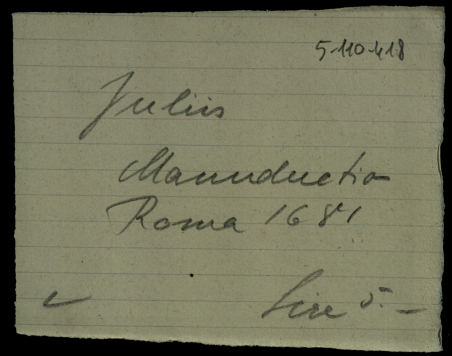 5-110-418
Julius
Manuductio
Roma 1681
Lire 5.-